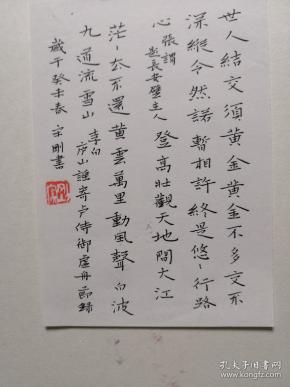 世人結交須黃金黃金不多交不
深縱令然諾暫相許終是悠〻行路
心 張謂題長安壁主人 登高壯觀天地間大江
茫〻去不還黃雲萬里動風聲白波
九道流雪山 李白庐山謡寄卢侍御虛舟節錄
歲于癸未春宗剛書
孔夫子旧书网